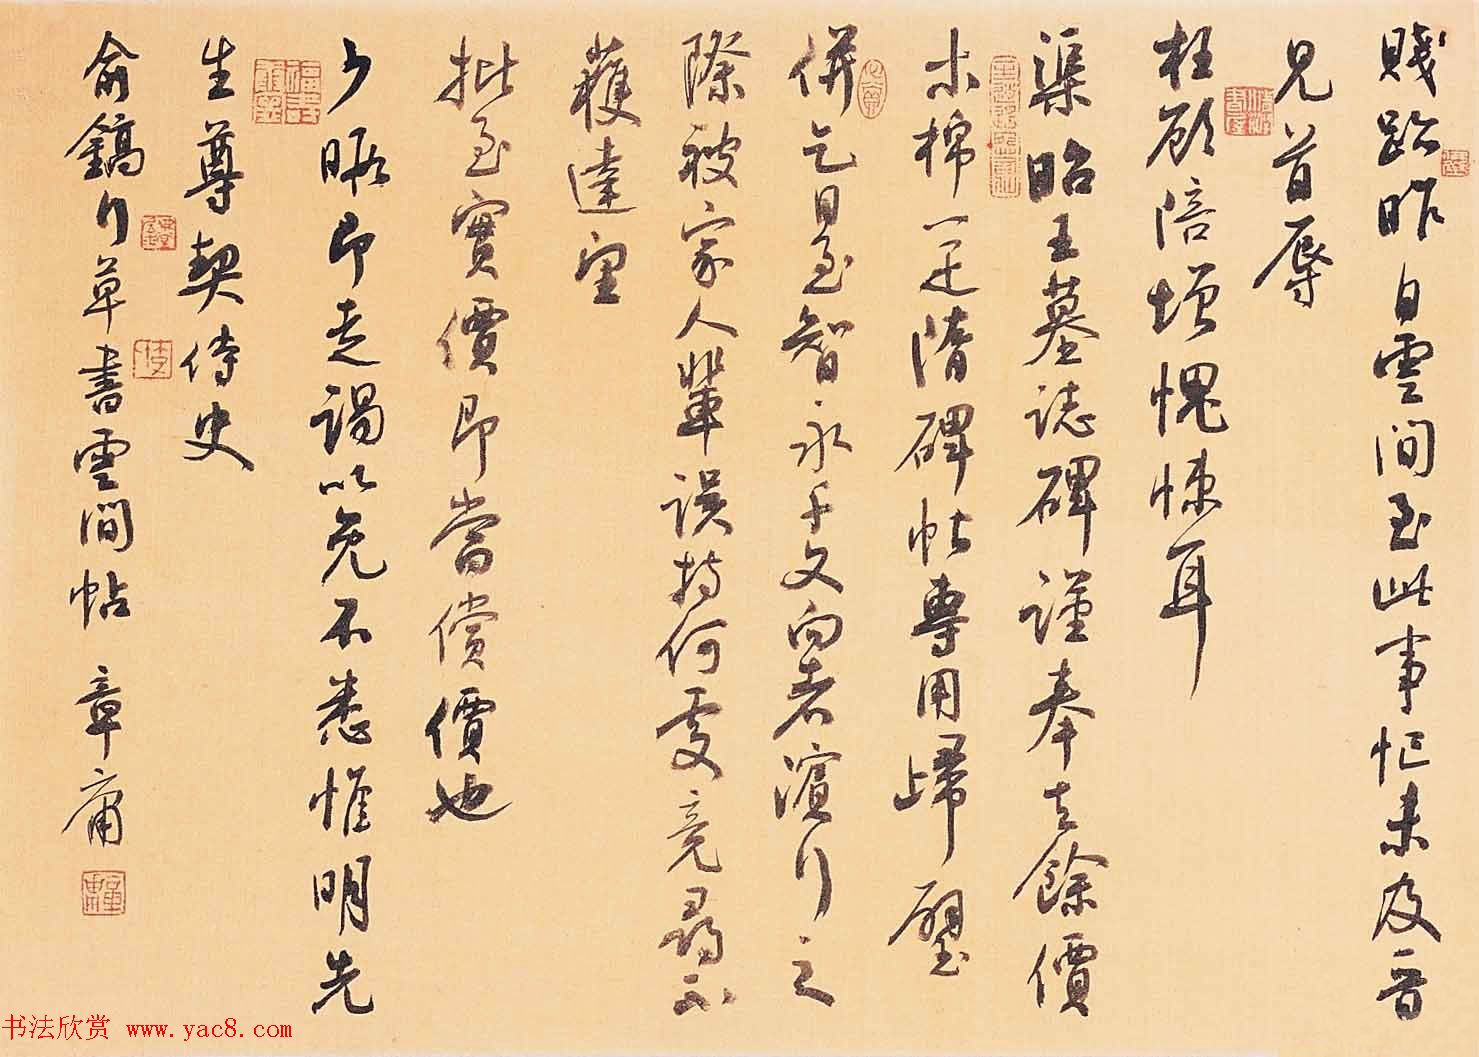 賤跡昨自雲間至此事忙未及一音
兄首辱
枉顧陪增愧悚耳
渠昭王墓誌碑謹奉去餘價
木棉一疋隋碑帖專用歸璧
併乞目至智永千文向者濱行之
際被家人輩誤持何處竟尋不
獲達望
批至實價即當償價也
少暇即走謁以究不悉惟明先
生尊契侍史
俞鎬行草書雲間帖 章庸
书法欣赏 www.yac8.com